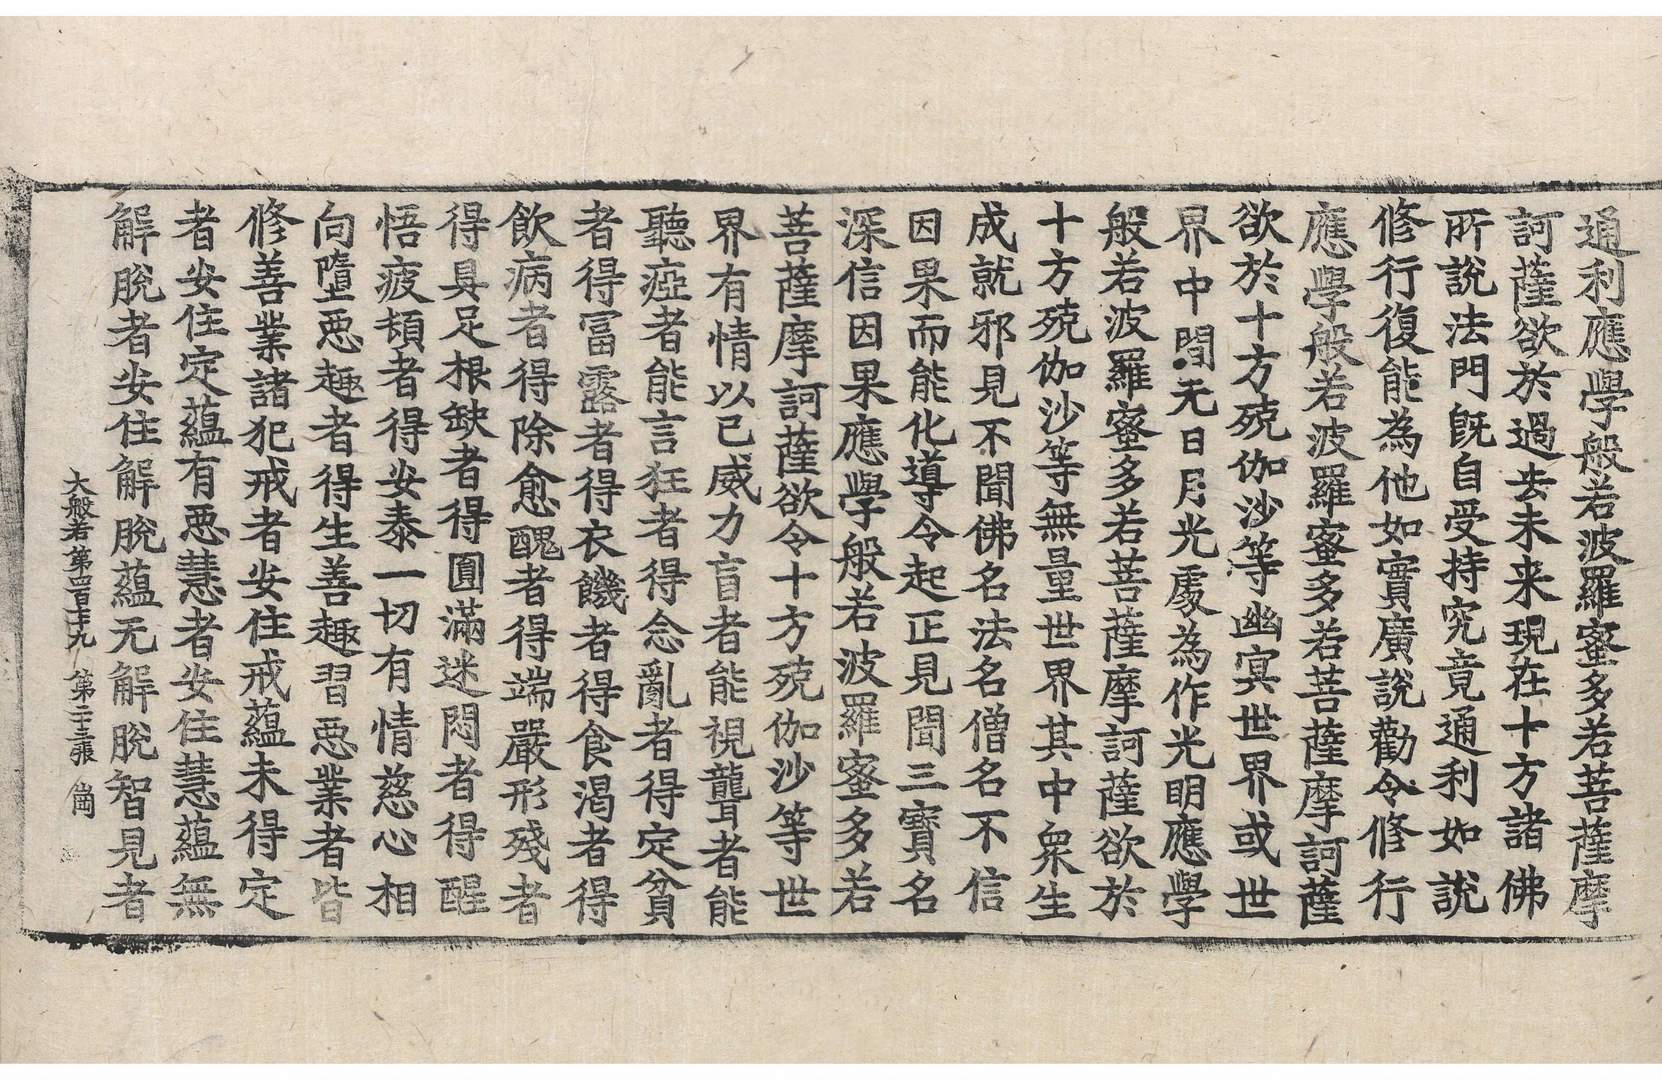 通利應學般若波羅蜜多若菩薩摩
訶薩欲於過去未来現在十方諸佛
所說法門旣自受持究竟通利如說
修行復能為他如實廣說勸令修行
應學般若波羅蜜多若菩薩摩訶薩
欲於十方殑伽沙等幽冥世界或世
界中間无日月光處為作光明應學
般若波羅蜜多若菩薩摩訶薩欲於
十方殑伽沙等無量世界其中衆生
成就邪見不聞佛名法名僧名不信
因果而能化導令起正見聞三寶名
深信因果應學般若波羅蜜多若
菩薩摩訶薩欲令十方殑伽沙等世
界有情以己威力盲者能視聾者能
聽瘂者能言狂者得念亂者得定貧
者得冨露者得衣饑者得食渴者得
飲病者得除愈醜者得端嚴形殘者
得具足根缺者得圓滿迷悶者得醒
悟疲頓者得安泰一切有情慈心相
向墮惡趣者得生善趣習惡業者皆
修善業諸犯戒者安住戒蘊未得定
者安住定蘊有惡慧者安住慧蘊無
解脫者安住解脫蘊无解脫智見者
大般若第四百二十九 第二十三張 崗